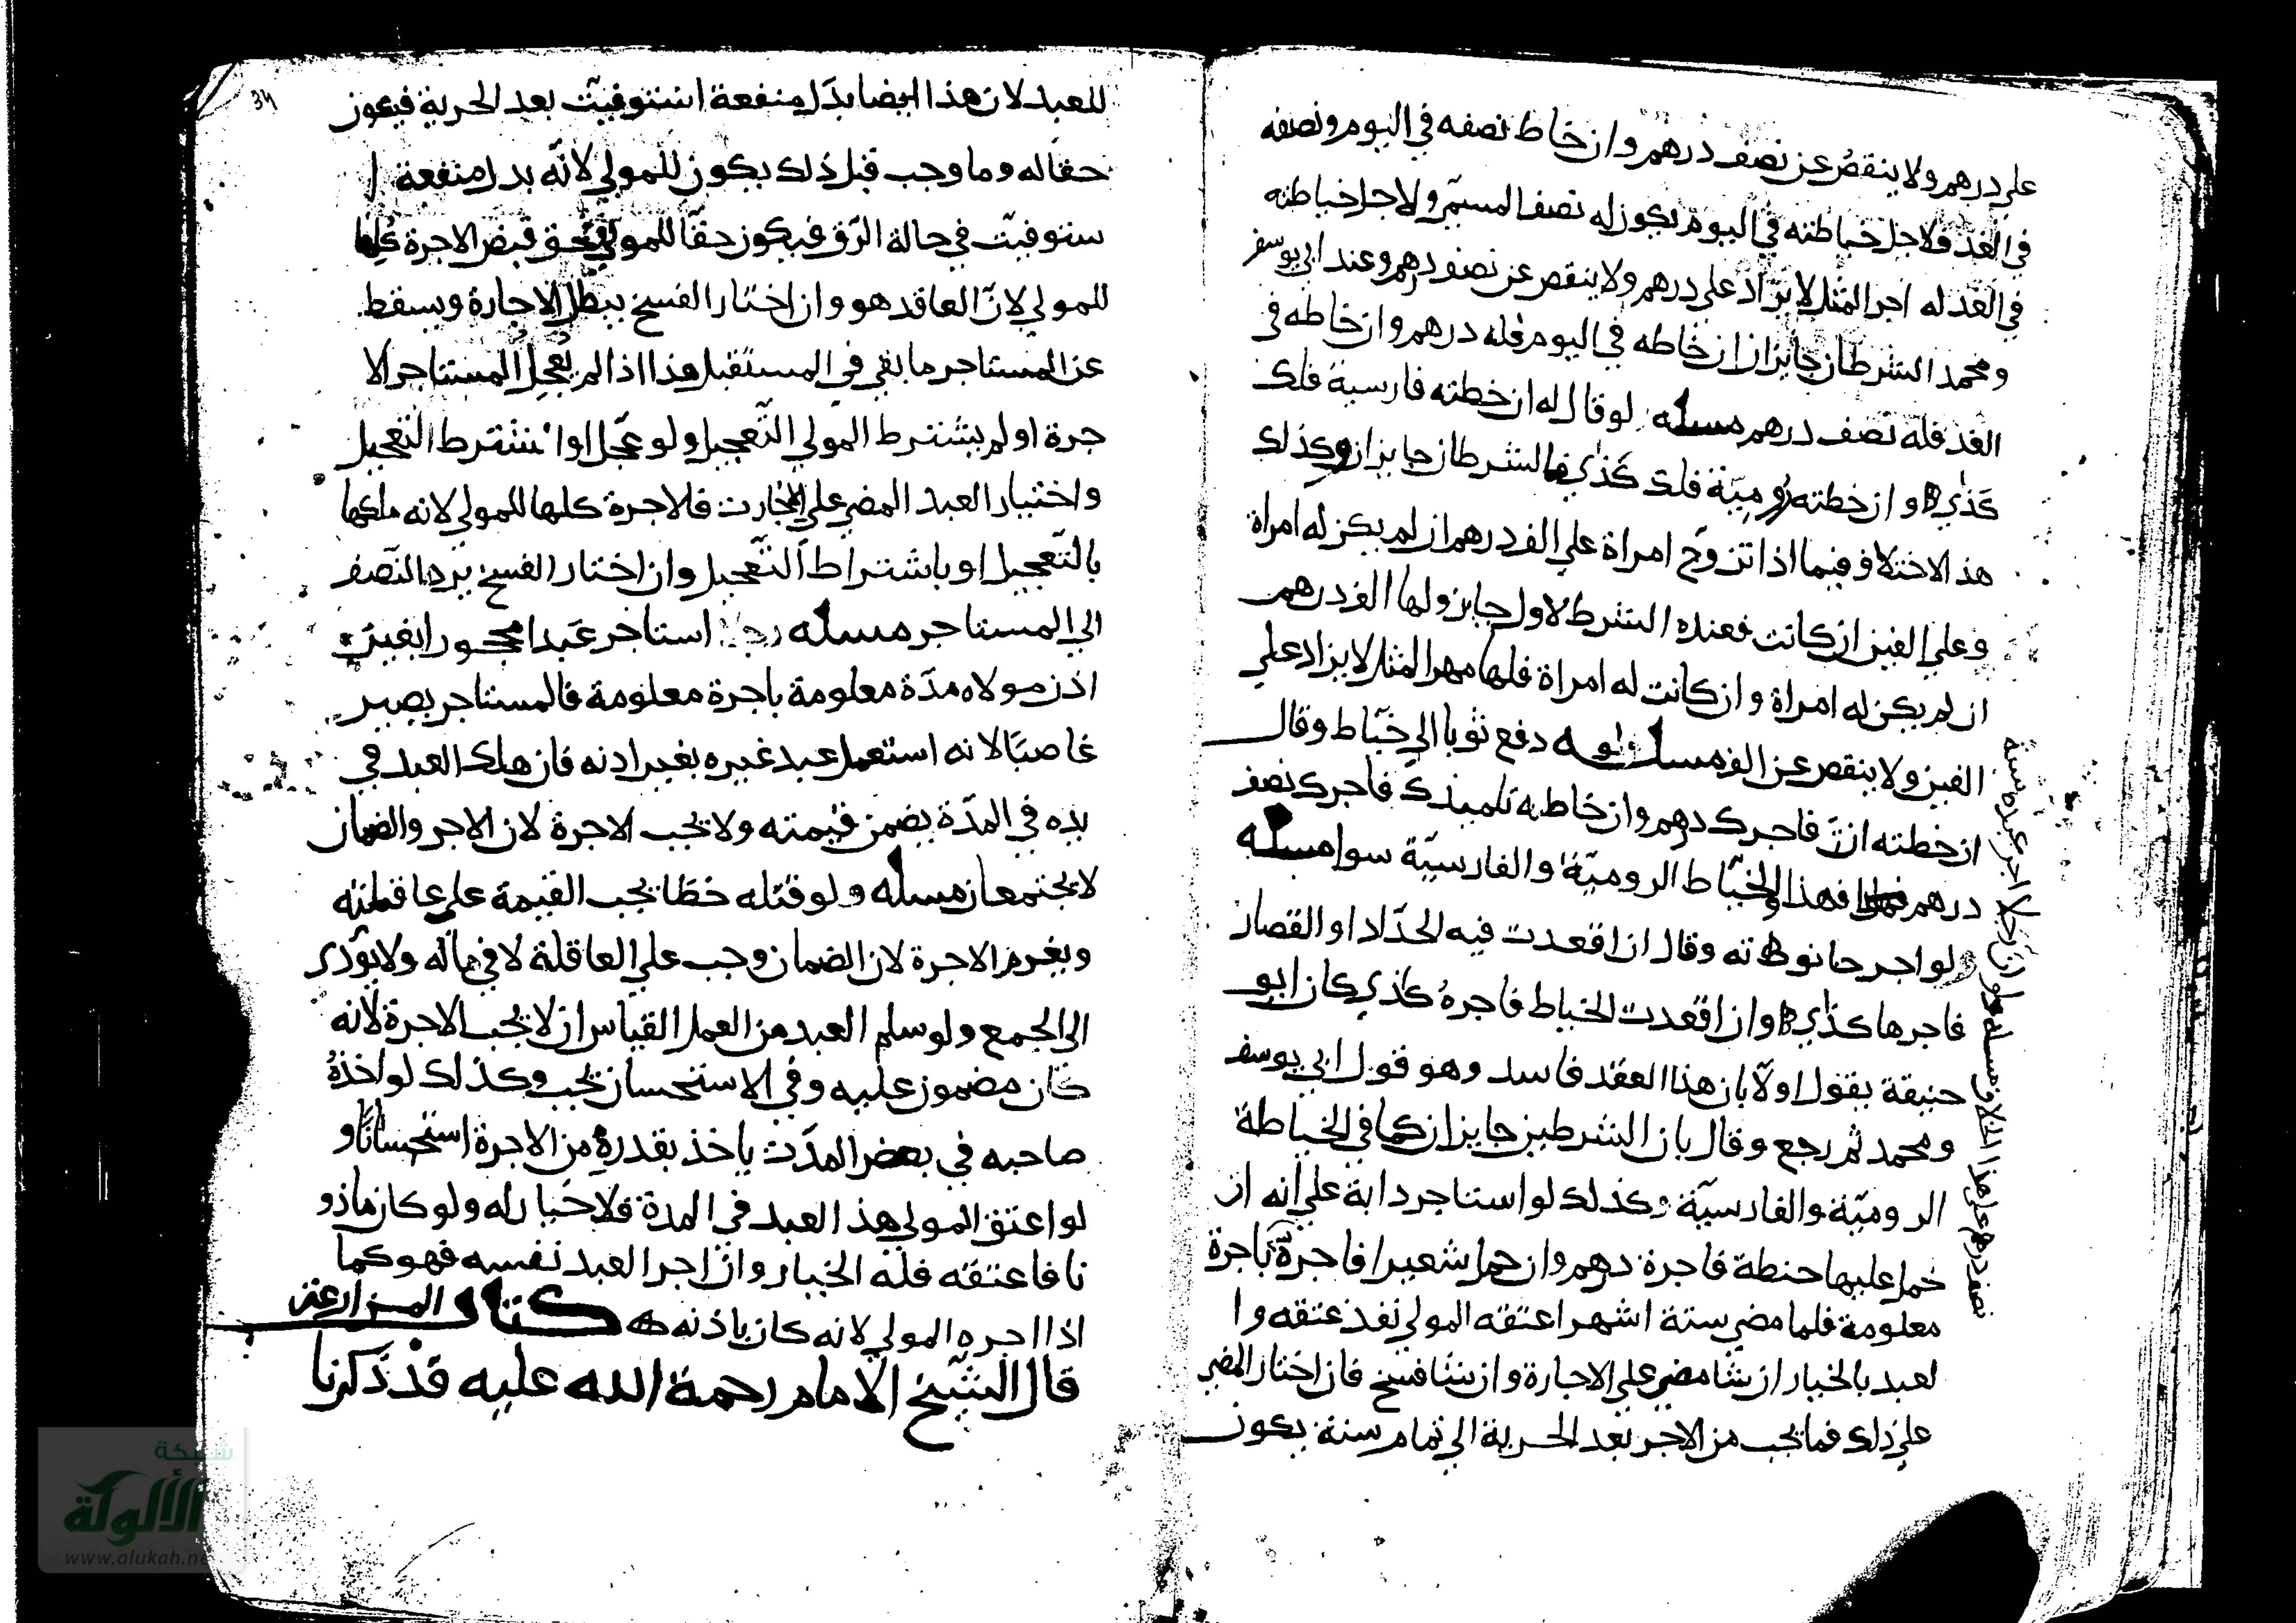 علي درهم ولا ينقص عن نصف درهم وان خاط نصفه في اليوم ونصفه
في الغد فلاجل خياطته في اليوم يكون له نصف المسمّى ولاجل خياطته
في الغد له اجر المثل لا يزاد علي درهم ولا ينقص عن نصف درهم وعند ابي يوسف
ومحمد الشرطان جايزان ان خاطه في اليوم فله درهم وان خاطه في
الغد فله نصف درهم مسله لو قال له ان خطته فارسية فلك
كذي وان خطته رُوميّة فلك كذي فالشرطان جايزان وكذلك
هذ الاختلاف فيما اذا تزوّج امراة علي الف درهم ان لم يكن له امراة
وعلي الفين ان كانت فعنده الشرط لاول جايز ولها الف درهم
ان لم يكن له امراة وان كانت له امراة فلها مهر المثل لا يزاد علي
الفين ولا ينقص عن الف مسله دفع ثوبا الي خيّاط وقال
ان خطته انتَ فاجرك درهم وان خاطه تلميذك فاجرك نصف
درهم فهذا والخيّاط الروميّة والفارسيّة سوا مسله
ولو اجر حانوطه وقال ان اقعدت فيه الحدّاد او القصار
فاجرها كذي وان اقعدت الخياط فاجرهُ كذي كان ابو
حنيفة يقول اولّا بان هذا العقد فاسد وهو قول ابي يوسف
ومحمد ثم رجع وقال بان الشرطين جايزان كما في الخياطة
الروميّة والفارسيّة وكذلك لو استاجر دابة علي انه ان
حمل عليها حنطة فاجرة درهم وان حمل شعيرا فاجرة باجرة
معلومة فلما مضي ستة اشهر اعتقه المولي نفذ عتقه وا
لعبد بالخيار ان شا مضي علي الاجارة وان شا فسخ فان اختار المضي
علي ذلك فما يجب من الاجر بعد الحرية الي تمام سنة يكون
علي هذا الخلاف مسله ولو ان رجلا اجر عبده سنة
نصف درهم
34
للعبد لان هذا ايضا بدَل منفعة استوفيتّ بعد الحرية فيكون
حقا له وما وجب قبل ذلك يكون للمولي لانّه بدل منفعة ا
ستوفيتّ في حالة الرّق فيكون حقّا للمولي وحق قبض الاجرة كلها
للمولي لانّ العاقد هو وان اختار الفسخ يبطل الاجارة ويسقط
عن المستاجر ما بقي في المستقبل هذا اذا لم يُعجل المستاجر الا
جرة او لم يشترط المولي التّعجيل ولو عجّل او اشترط التّعجيل
واختيار العبد المضي علي الاجارت فلاجرة كلها للمولي لانه ملكها
بالتّعجيل او باشتراط التّعجيل وان اختار الفسخ يرد النّصف
الي المستاجر مسله رجل استاجر عبدا محجورا بغير
اذن مولاه مدّة معلومة باجرة معلومة فالمستاجر يصير
غاصبًا لانه استعمل عبد غيره بغير اذنه فان هلك العبد في
يده في المدّة يضمن قيمته ولا يجب الاجرة لان الاجر والضمان
لا يجتمعان مسله ولو قتله خطا يجب القيمة علي عاقلته
ويغرم الاجرة لان الضمان وجب علي العاقلة لا في ماله ولا يودّي
الي الجمع ولو سلم العبد من العمل القياس ان لا يجب الاجرة لانه
كان مضمون عليه وفي الاستحسان يجب وكذلك لو اخذهُ
صاحبه في بعض المدّت ياخذ بقدرهِ من الاجرة استحسانًا و
لو اعتق المولي هذ العبد في المدة فلا خيار له ولو كان ماذو
نا فاعتقه فله الخيار وان اجر العبد نفسه فهو كما
اذا اجره المولي لانه كان باذنه كتاب المزارعة
قال الشّيخ الامام رحمة الله عليه قد ذكرنا
شبكة
الألوكة